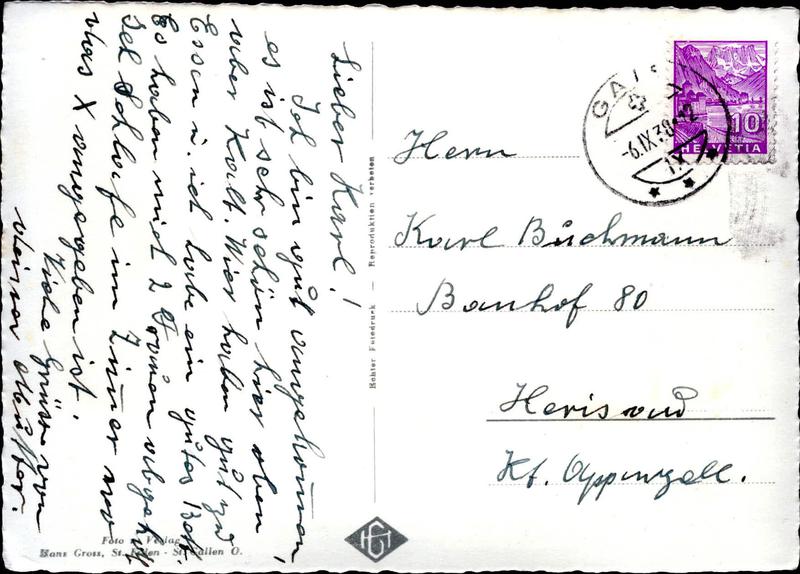 Lieber Karl!
Ich bin gut angekommen,
es ist sehr schön hier oben,
aber Kalt. Wier haben gut zu
Essen u. ich habe ein gutes Bett.
Es haben mich 2 Frauen abgeholt
Ich Schlafe im Zimer wo
das X angegeben ist.
Liebe Grüsse von
deiner Mutter.
Foto Verlag
Hans Gross, St. Fiden - St. Gallen O.
Echter Fotodruck — Reproduktion verboten
HG
GAIS
-6.IX.38-12
10
HELVETIA
Herrn
Karl Buchmann
Banhof 80
Herisaud
Kt. Appenzell.